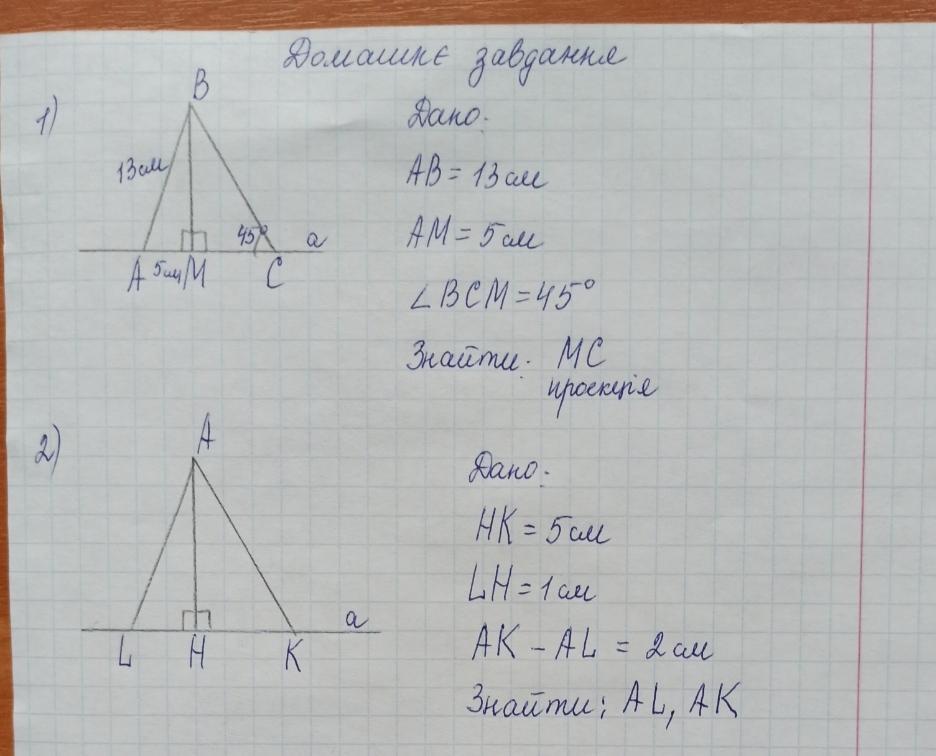 Домашнє завдання
1)
B
13см
45°
a
A 5см M C
Дано:
AB = 13 см
AM = 5 см
∠BCM = 45°
Знайти: MC
проекція
2)
A
a
L H K
Дано:
HK = 5 см
LH = 1 см
AK - AL = 2 см
Знайти: AL, AK